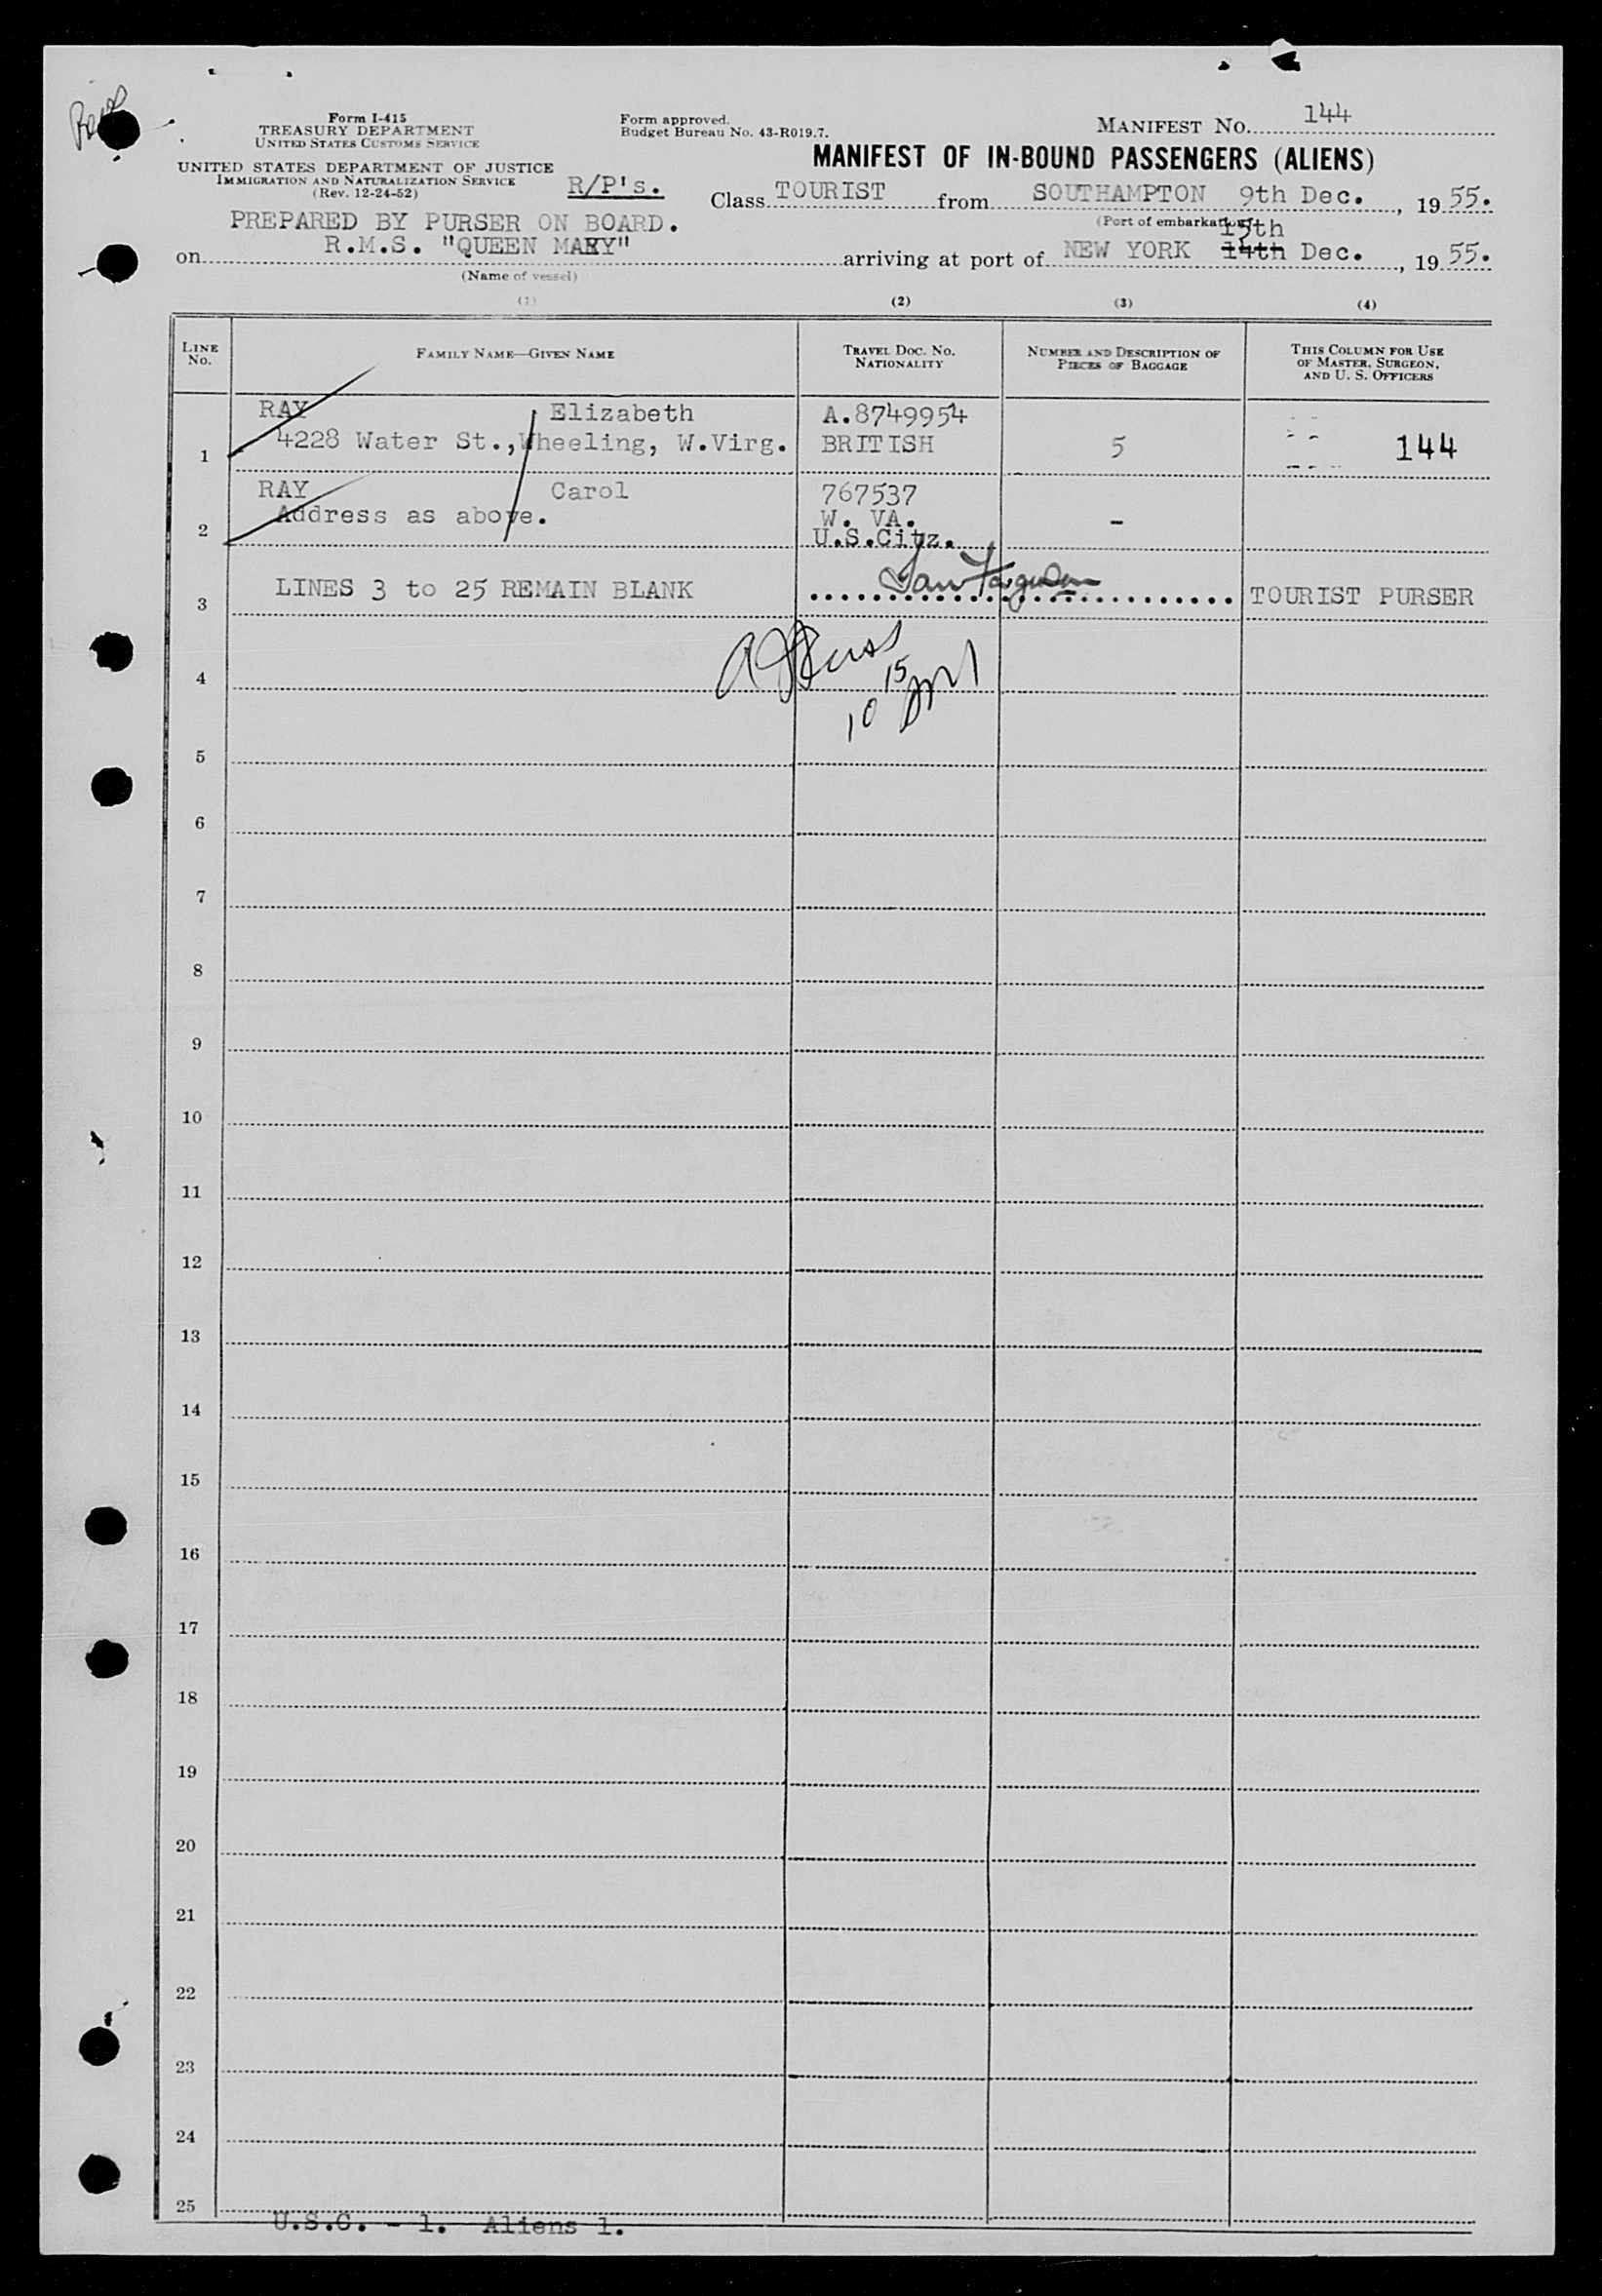 Form I-415
TREASURY DEPARTMENT
UNITED STATES CUSTOMS SERVICE
UNITED STATES DEPARTMENT OF JUSTICE
IMMIGRATION AND NATURALIZATION SERVICE
(Rev. 12-24-52)
R/P's.
Form approved.
Budget Bureau No. 43-R019.7.
MANIFEST No. 144
MANIFEST OF IN-BOUND PASSENGERS (ALIENS)
Class TOURIST from SOUTHAMPTON 9th Dec. , 19 55.
(Port of embarkation)
PREPARED BY PURSER ON BOARD.
15th
on R.M.S. "QUEEN MARY" arriving at port of NEW YORK 14th Dec. , 19 55.
(Name of vessel)
(1) (2) (3) (4)
LINE No. FAMILY NAME—GIVEN NAME TRAVEL DOC. No. NATIONALITY NUMBER AND DESCRIPTION OF PIECES OF BAGGAGE THIS COLUMN FOR USE OF MASTER, SURGEON, AND U. S. OFFICERS
RAY Elizabeth A.8749954
1 4228 Water St., Wheeling, W.Virg. BRITISH 5 144
RAY Carol 767537
2 Address as above. W. VA. -
U.S.Citz.
3 LINES 3 to 25 REMAIN BLANK TOURIST PURSER
4
15
10
5
6
7
8
9
10
11
12
13
14
15
16
17
18
19
20
21
22
23
24
25
U.S.C. - 1. Aliens 1.